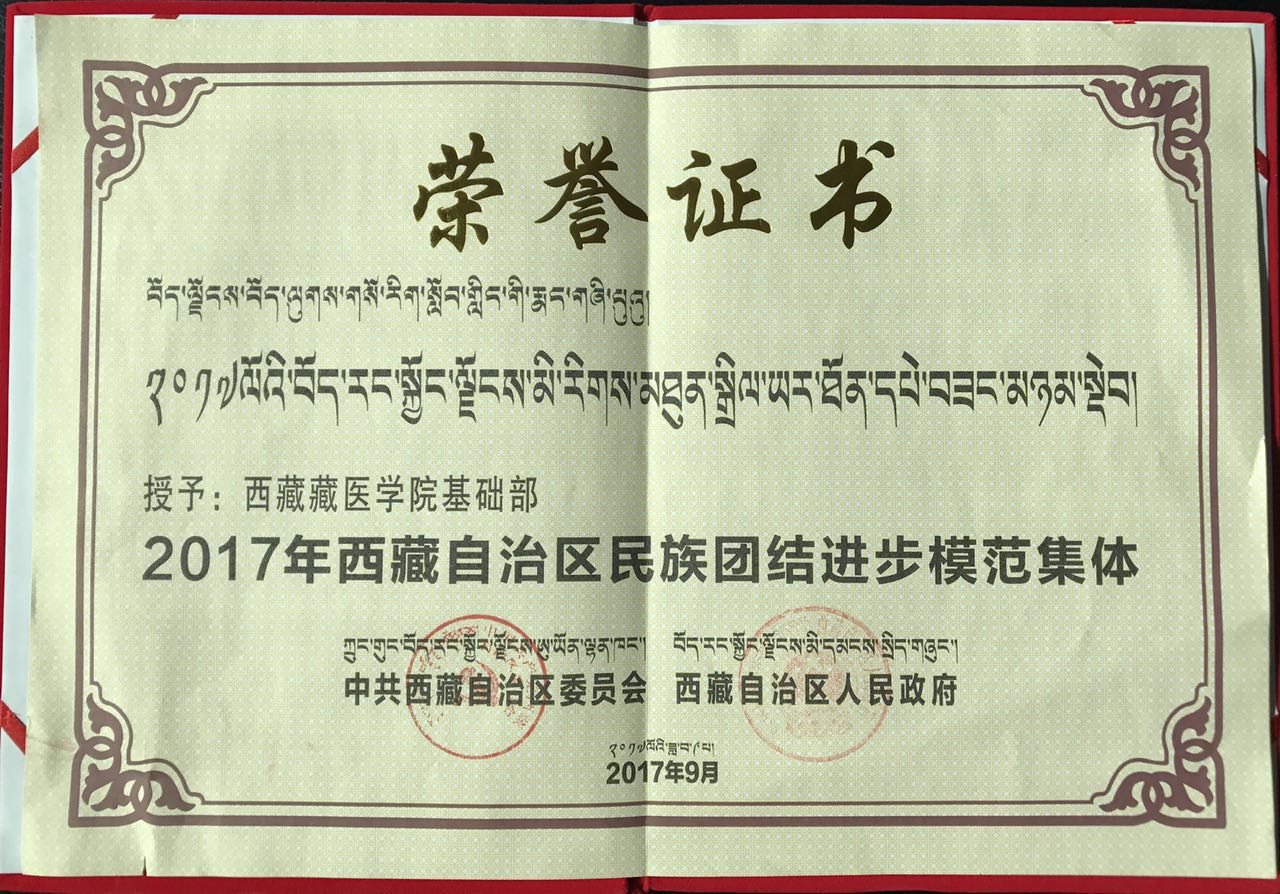 荣誉证书
བོད་ལྗོངས་བོད་ལུགས་གསོ་རིག་སློབ་གླིང་གི་རྨང་གཞི་པུའུ།
༢༠༡༧ལོའི་བོད་རང་སྐྱོང་ལྗོངས་མི་རིགས་མཐུན་སྒྲིལ་ཡར་ཐོན་དཔེ་བཟང་མཉམ་སྡེབ།
授予：西藏藏医学院基础部
2017年西藏自治区民族团结进步模范集体
ཀྲུང་གུང་བོད་རང་སྐྱོང་ལྗོངས་ཨུ་ཡོན་ལྷན་ཁང་། བོད་རང་སྐྱོང་ལྗོངས་མི་དམངས་སྲིད་གཞུང་།
中共西藏自治区委员会 西藏自治区人民政府
༢༠༡༧ལོའི་ཟླ་བ་༩པ།
2017年9月